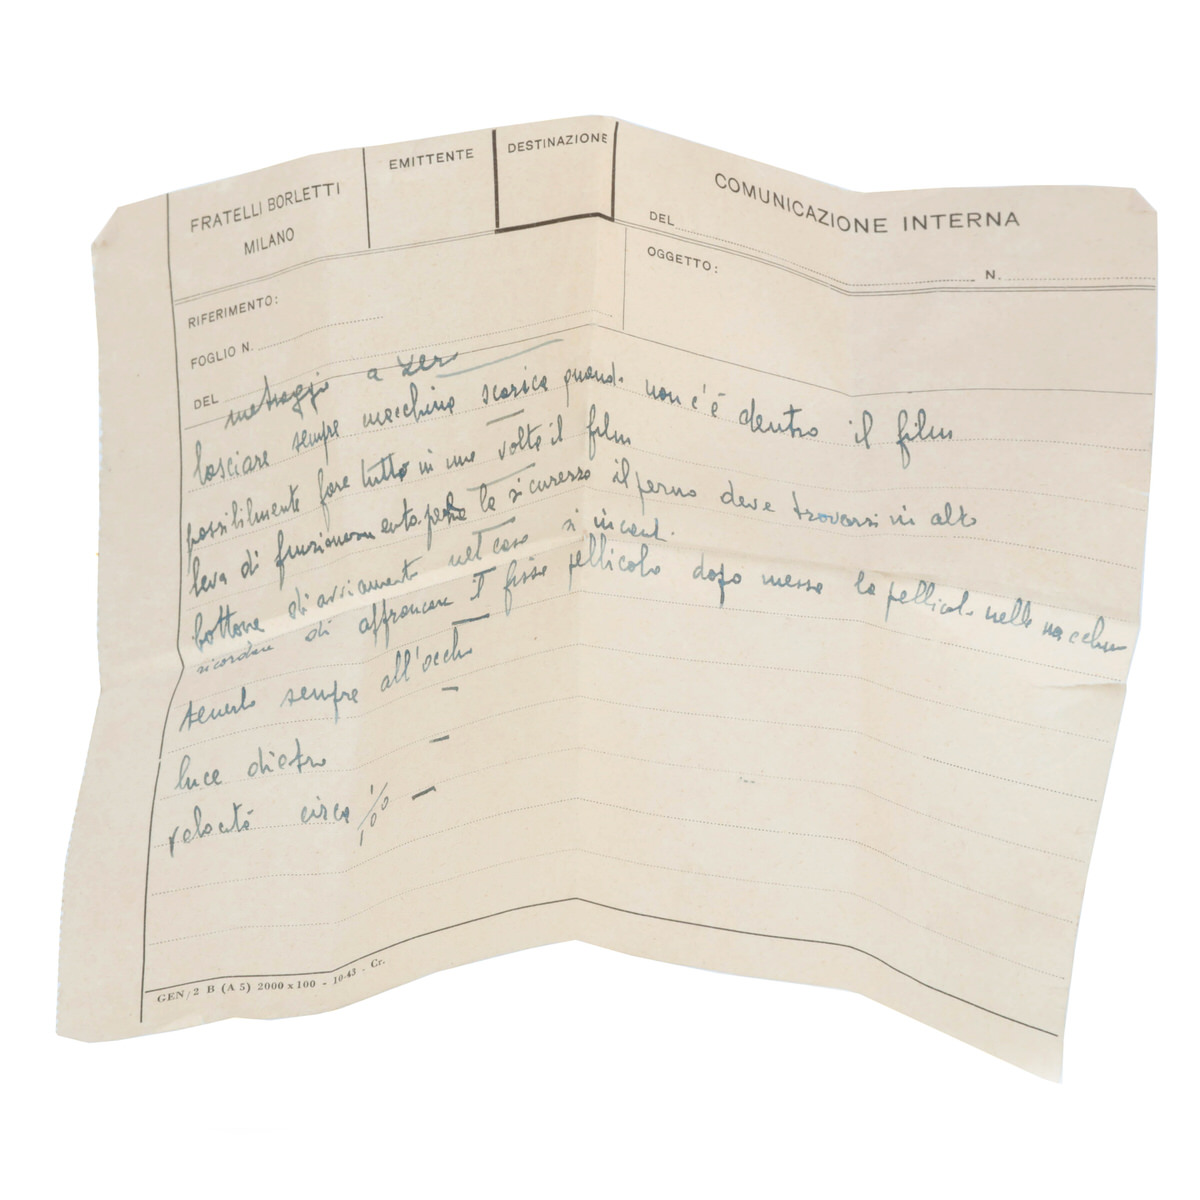 FRATELLI BORLETTI
MILANO
EMITTENTE
DESTINAZIONE
COMUNICAZIONE INTERNA
DEL
N.
RIFERIMENTO:
OGGETTO:
FOGLIO N.
DEL
metraggio a zero
lasciare sempre macchina scarica quando non c'è dentro il film
possibilmente fare tutto in una volta il film
leva di funzionamento la sicurezza il perno deve trovarsi in alto
bottone di avviamento nel caso si incant.
ricordare di affrancare il fissa pellicola dopo messa la pellicola nella macchina
tenerlo sempre all'occhio
luce dietro
velocità circa 1/100
GEN/2 B (A 5) 2000 x 100 - 10-43 - Cr.